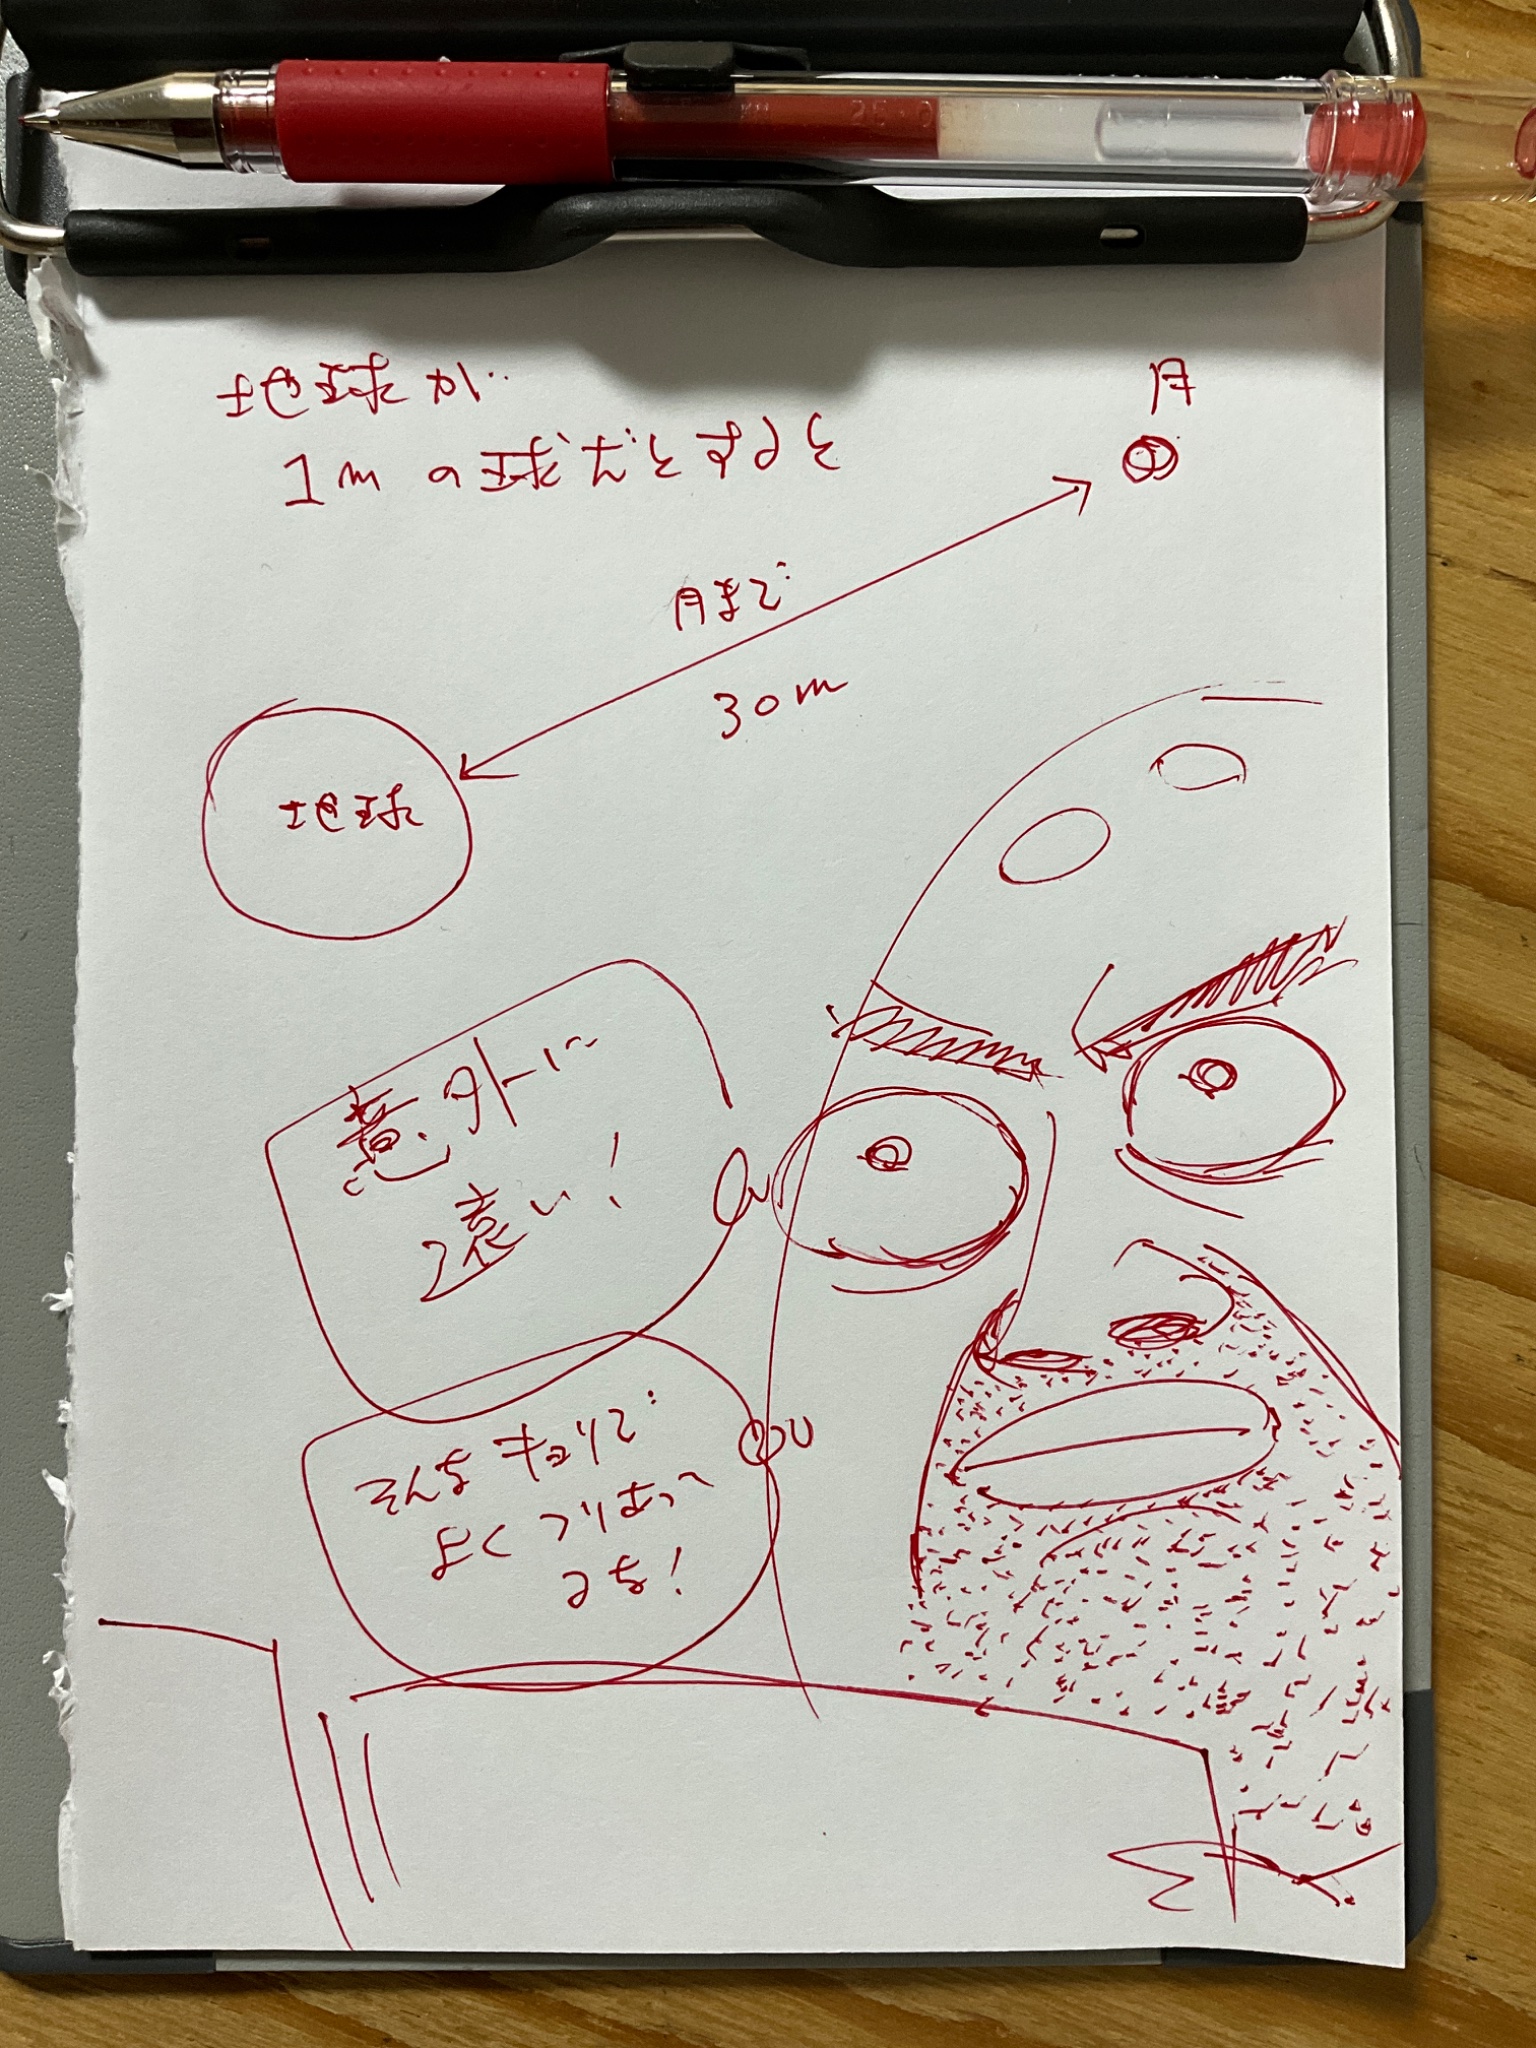 地球が
1mの球だとすると
月
月まで
30m
地球
意外に
遠い!
そんなキョリで
よくつりあって
るな!